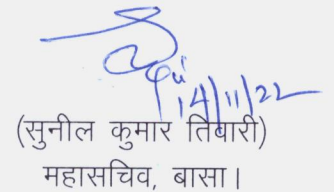 14/11/22
(सुनील कुमार तिवारी)
महासचिव, बासा।